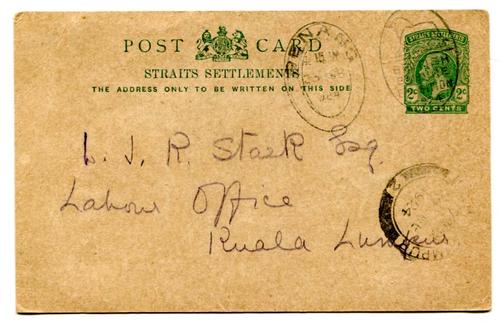 POST CARD
STRAITS SETTLEMENTS
THE ADDRESS ONLY TO BE WRITTEN ON THIS SIDE
STRAITS SETTLEMENTS
2c 2c
TWO CENTS
PENANG
L. J. R. Stark Esq.
Labour Office
Kuala Lumpur